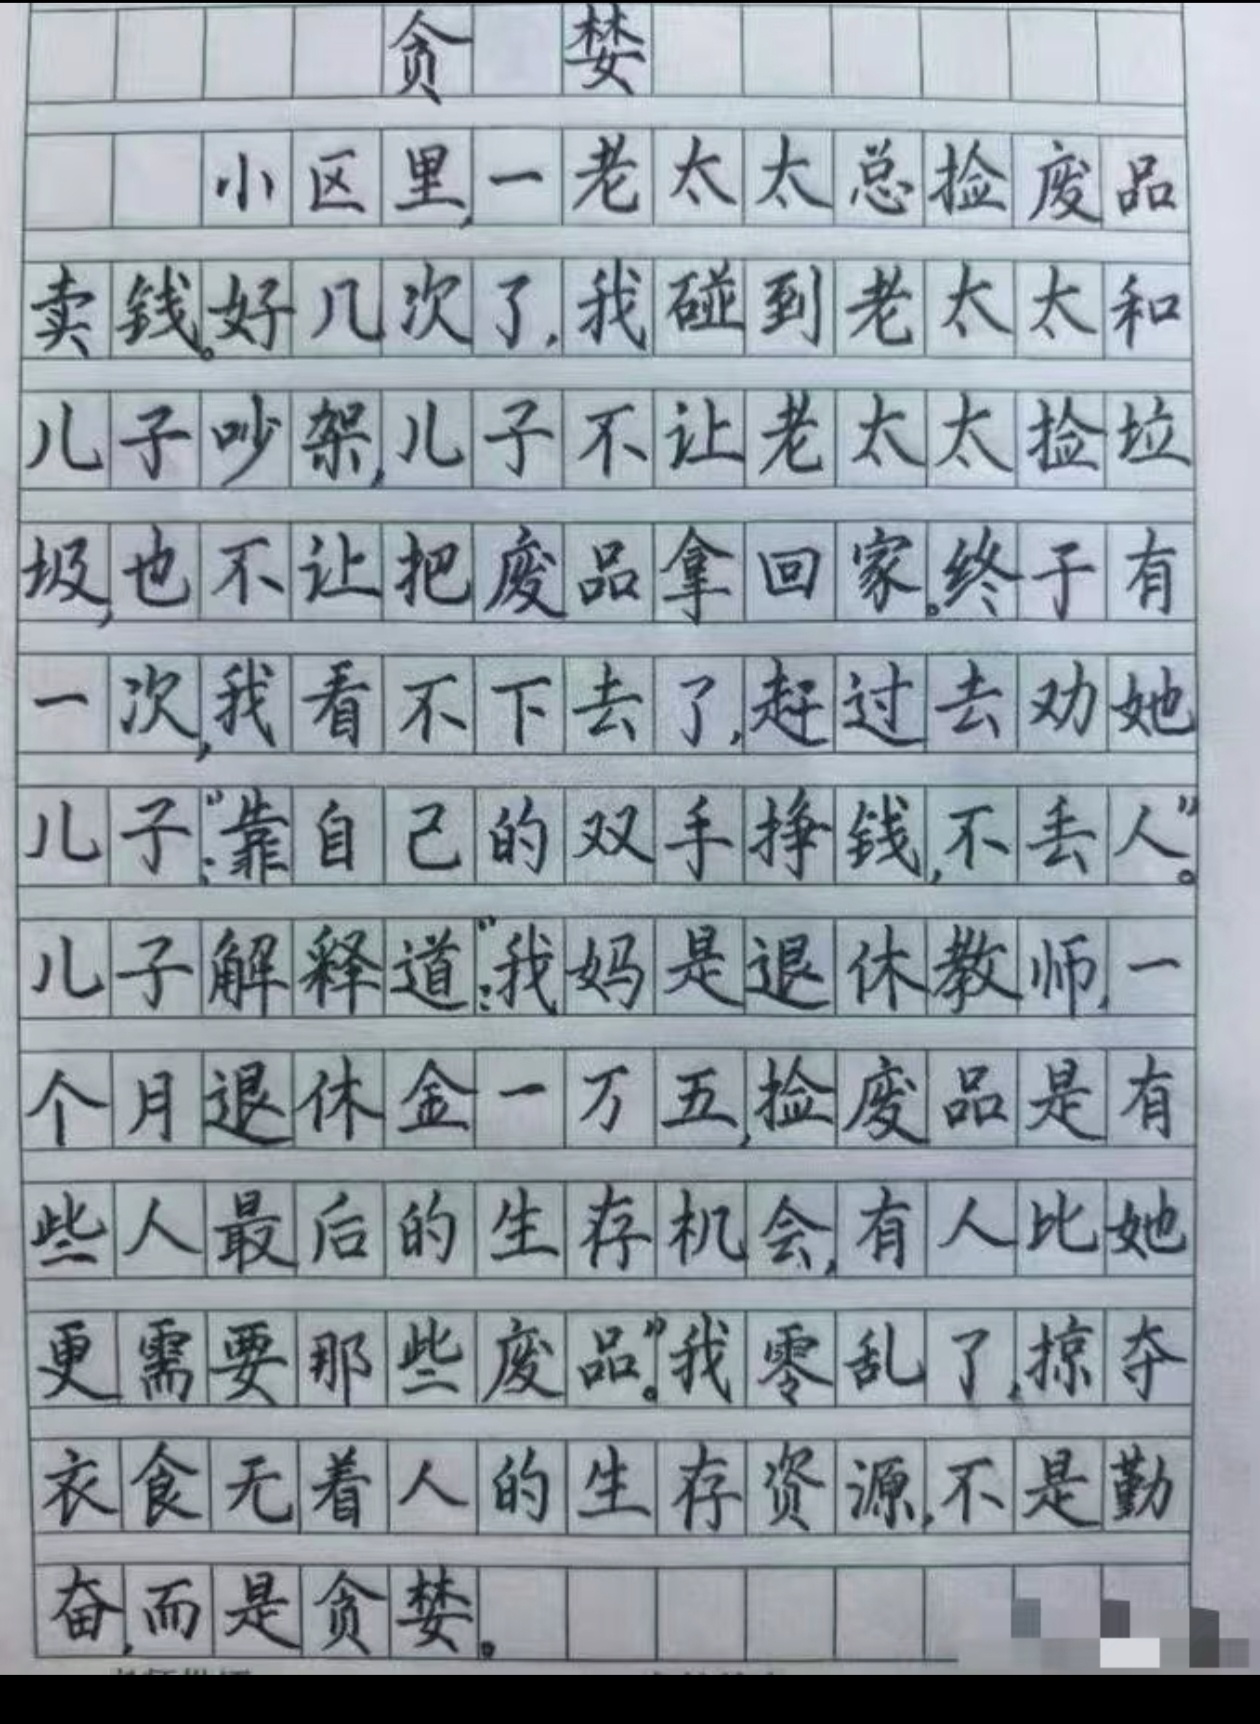 贪婪
小区里,一老太太总捡废品
卖钱。好几次了,我碰到老太太和
儿子吵架,儿子不让老太太捡垃
圾,也不让把废品拿回家。终于有
一次,我看不下去了,赶过去劝她
儿子:“靠自己的双手挣钱,不丢人”。
儿子解释道:“我妈是退休教师,一
个月退休金一万五,捡废品是有
些人最后的生存机会,有人比她
更需要那些废品”。我零乱了,掠夺
衣食无着人的生存资源,不是勤
奋,而是贪婪。